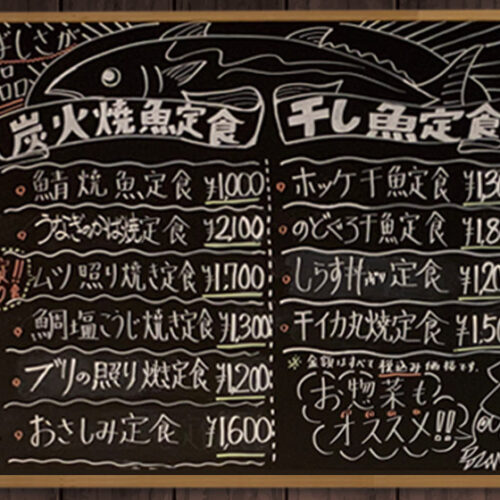 炭火焼魚定食
鯖焼魚定食 ¥1,000
うなぎのかば焼定食 ¥2,100
ムツ照り焼き定食 ¥1,700
鯛塩こうじ焼き定食 ¥1,300
ブリの照り焼き定食 ¥1,200
おさしみ定食 ¥1,600
干し魚定食
ホッケ干魚定食 ¥1,3
のどぐろ干魚定食 ¥1,8
しらす丼 定食 ¥1,20
干イカ丸焼定食 ¥1,50
※金額はすべて税込み価格です。
お惣菜も
オススメ!!